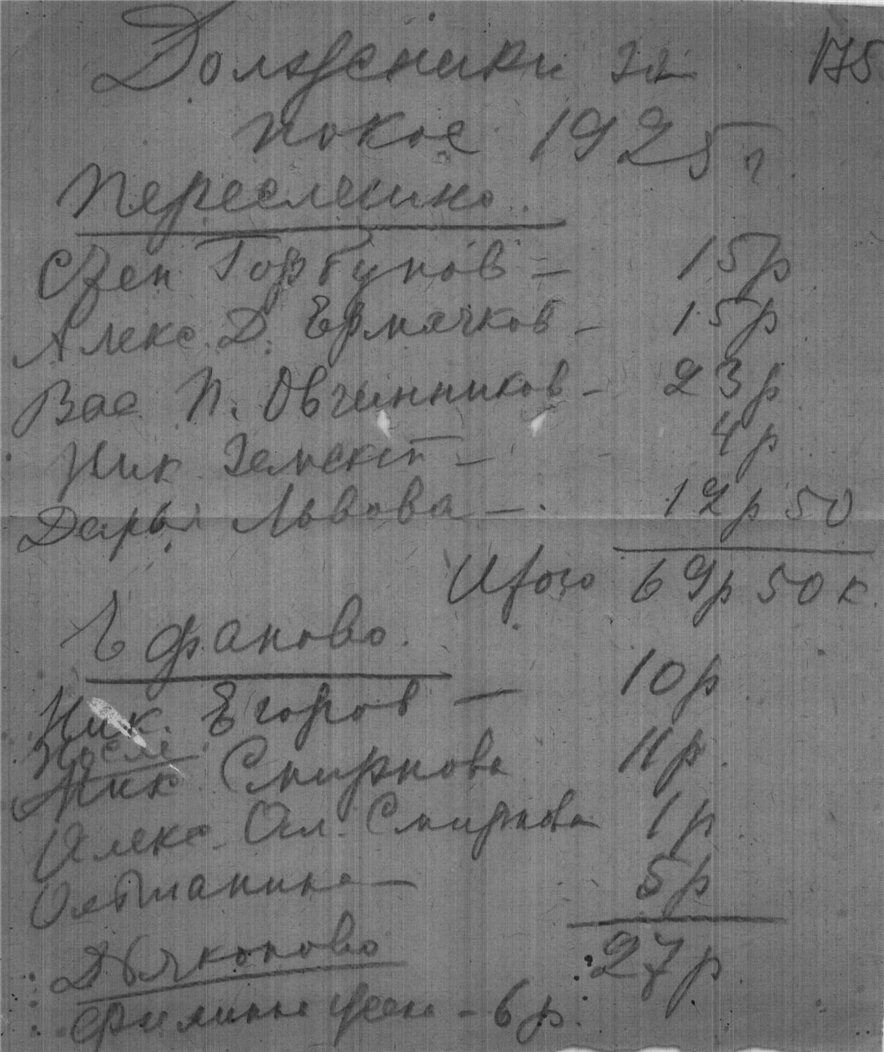 Должники за 175
покос 1925 г
Переслегино
Степ Горбунов – 15р
Алекс. Д. Ермачков – 15р
Вас П. Овчинников – 23р
Ник Земскт – 4р
Дарья Львова – 12р 50
Итого 69р 50к
Ефаново
Ник. Егоров – 10р
после
Ник Смирнова 11р.
Алекс. Ал. Смирнова 1р
5р
Дьяконово 27р
– 6р.